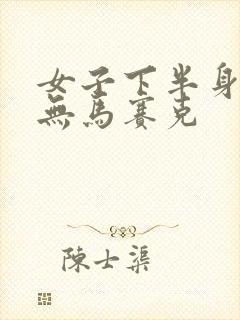 女子下半身
無馬賽克
陳士渠